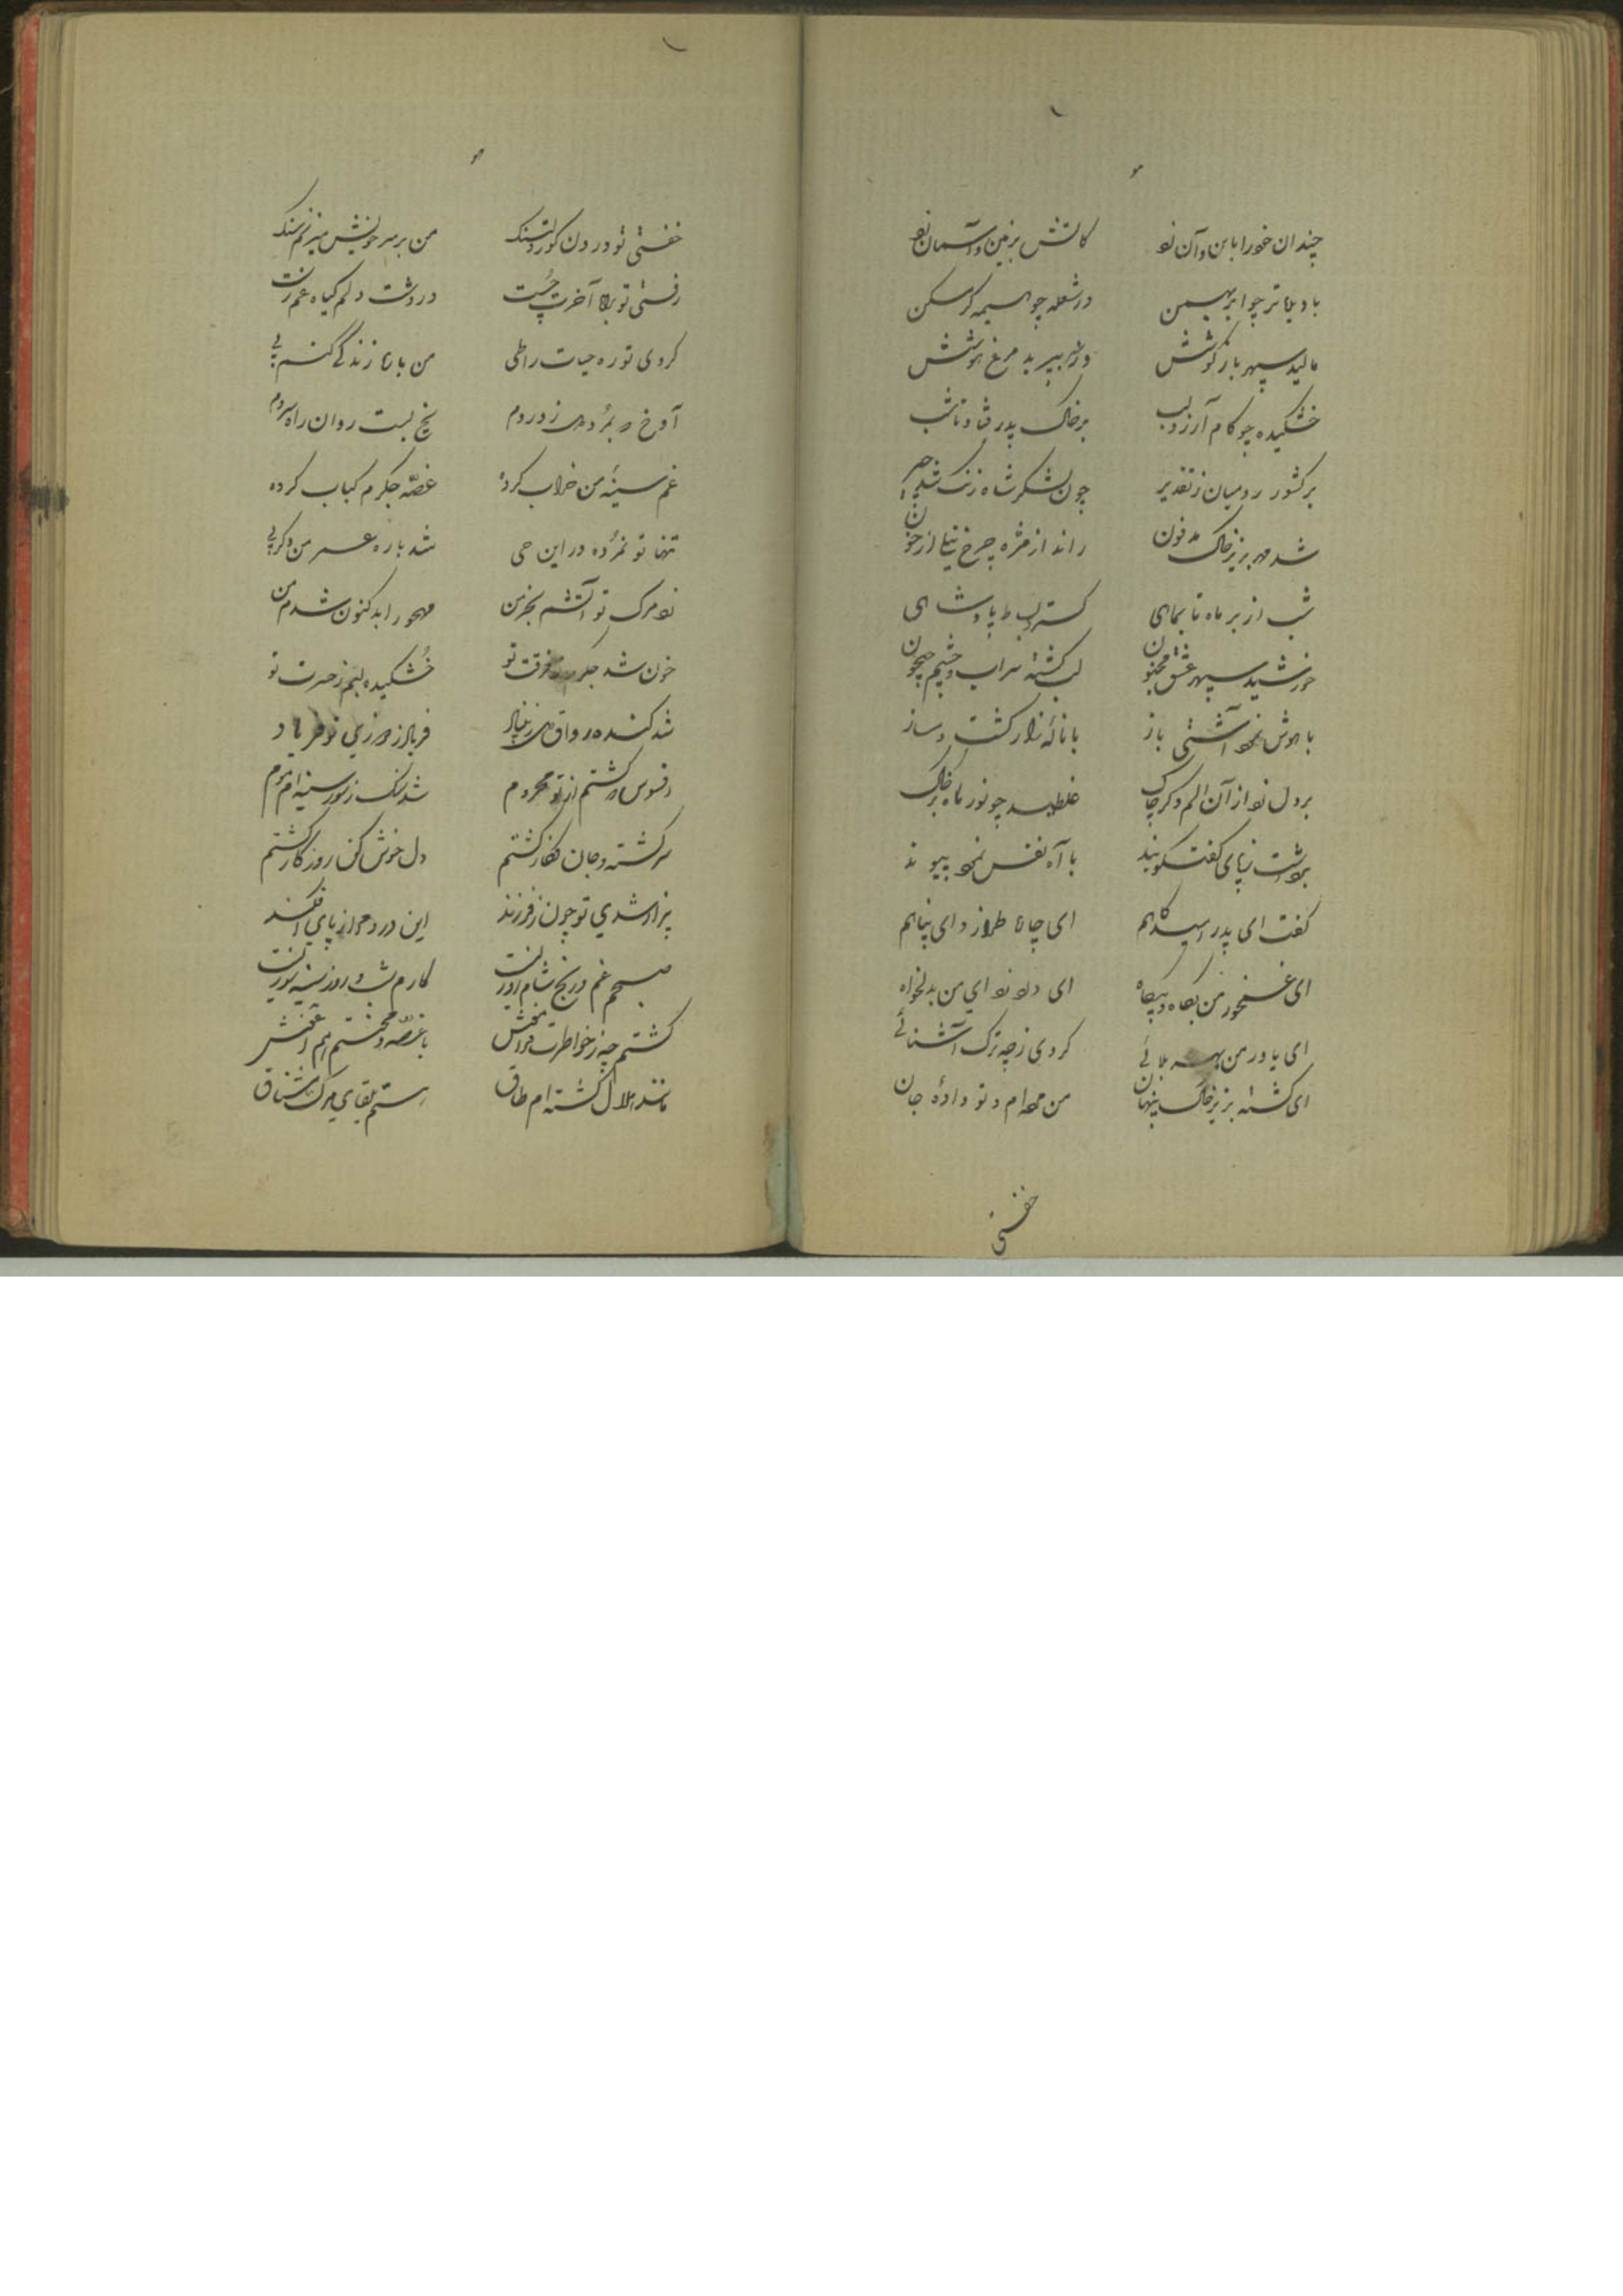 چندان خود را باین و آن زد کاتش بزمین و آسمان زد
با دیده تر چو ابر بهمن در شعله چو هیمه کرد مسکن
مالید سپهر باز گوشش وز سر بپرید مرغ هوشش
خشکیده چو کام آرزو لب بر خاک پدر فتاد تا شب
بر کشور رومیان ز تقدیر چون لشکر شاه زنگ شد چیر
شد مهر بزیر خاک مدفون راند از مژه چرخ نیل از خون
شب از بر ماه تا بماهی گسترد بساط پادشاهی
خورشید سپهر عشق مجنون لب گشته سراب و چشم جیحون
با هوش نمود آشتی باز با ناله زار گشت دمساز
بر دل زد از آن الم دگر چاک غلطید چو نور ماه بر خاک
برداشت ز پای گفتگو بند با آه نفس نمود پیوند
گفت ای پدر امیدگاهم ای چاره طراز و ای پناهم
ای غمخور من بگاه و بیگاه ای درد زدای من بدلخواه
ای یاور من بهر بلائی کردی ز چه ترک آشنائی
ای گشته بزیر خاک پنهان من مرده‌ام و تو داده جان
خفتی
خفتی تو در درون گور دلتنگ من بر سر خویش میزنم سنگ
رفتی تو براه آخرت چست در دشت دلم گیاه غم رست
کردی تو ره حیات را طی من با که زندگی کنم پی
آوخ که بمردی و ز دردم یخ بست روان راه سردم
غم سینه من خراب کرده غصه جگرم کباب کرده
تنها تو نمرده در این حی شد باره عمر من دگر پی
زد مرگ تو آتشم بخرمن مهجور ابد کنون شدم من
خون شد جگرم ز فرقت تو خشکیده لبم ز حسرت تو
شد کنده رواق من ز بنیاد فریاد ز مرگ تو فریاد
افسوس که گشتم از تو محروم شد سنگ ز سوز سینه‌ام موم
سرگشته و جان فکار گشتم دل خوش کن روزگار گشتم
بیزار شدی تو چون ز فرزند این درد مرا ز پای افکند
صبحم غم و رنج شام آورد
گشتم چه ز خواطرت فرامش با غصه و محنتم هم آغوش
مانند هلال گشته‌ام طاق هستم بلقای مرگ مشتاق